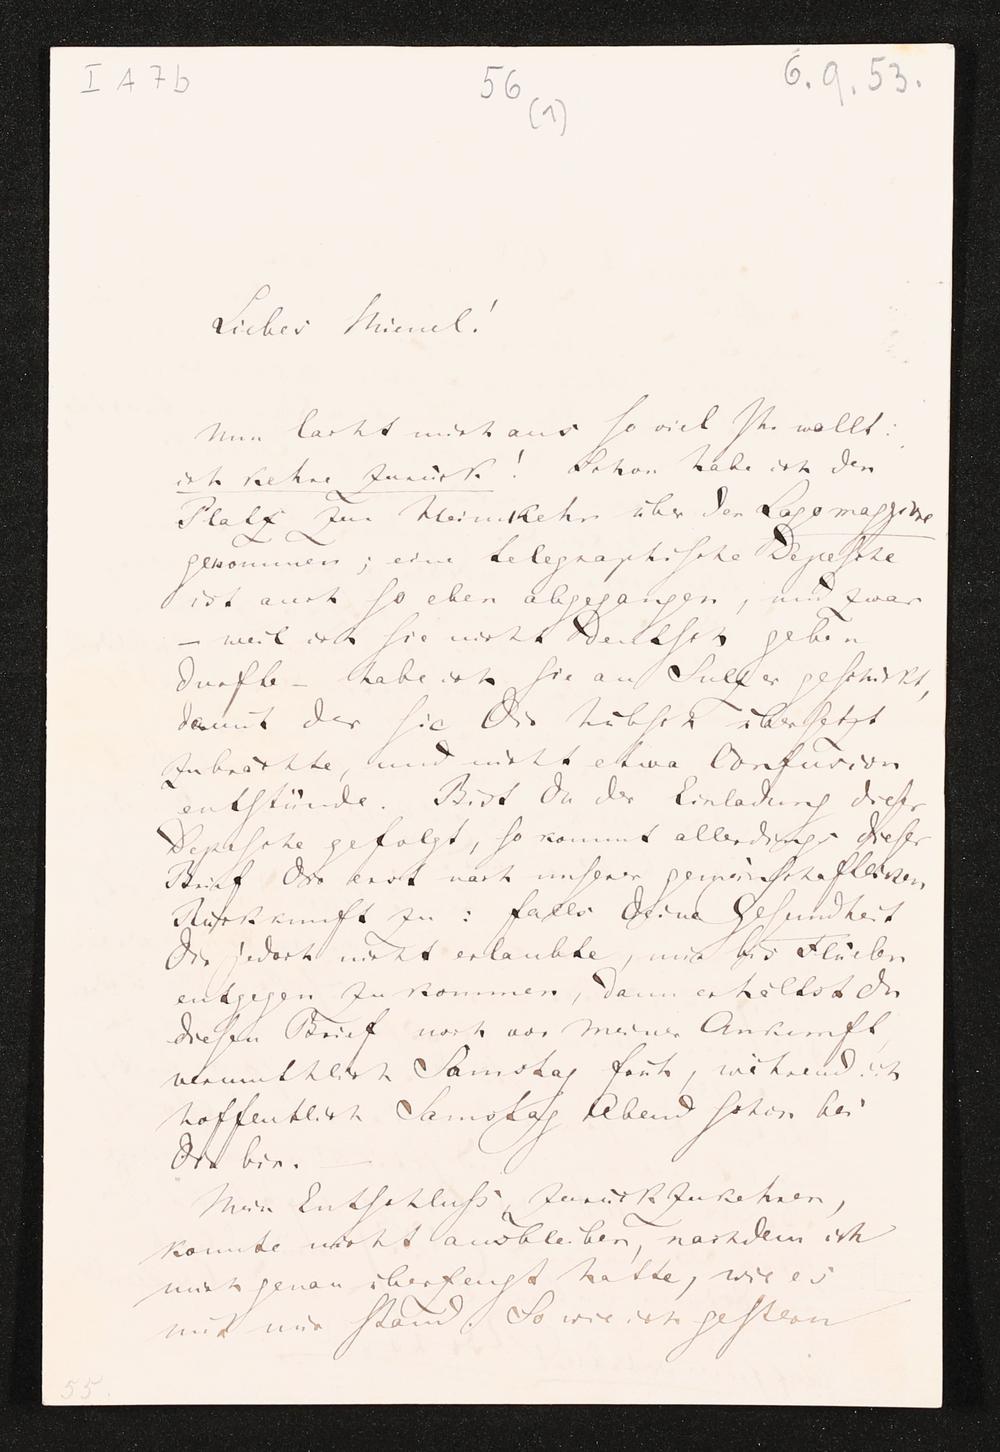 I A 7 b
56
(1)
6. 9. 53.
Liebes Mienel!
Nun lacht mich aus so viel Ihr wollt:
ich kehre zurück! Schon habe ich den
Platz zur Heimkehr über den Lago maggiore
genommen; eine telegraphische Depesche
ist auch so eben abgegangen, und zwar
– weil ich sie nicht Deutsch geben
durfte – habe ich sie an Sulzer geschickt,
damit der sie Dir hübsch übersetzt
zubrächte, und nicht etwa Confusion
entstünde. Bist Du der Einladung dieser
Depesche gefolgt, so kommt allerdings dieser
Brief Dir erst nach unserer gemeinschaftlichen
Rückkunft zu: falls Deine Gesundheit
Dir jedoch nicht erlaubte, mir bis Flüelen
entgegen zu kommen, dann erhältst Du
diesen Brief noch vor meiner Ankunft,
vermuthlich Samstag früh, während ich
hoffentlich Samstag Abend schon bei
Dir bin. —
Mein Entschluss, zurückzukehren,
konnte nicht ausbleiben, nachdem ich
mich genau überzeugt hatte, wie es
mit mir stand. So wie ich gestern
55.